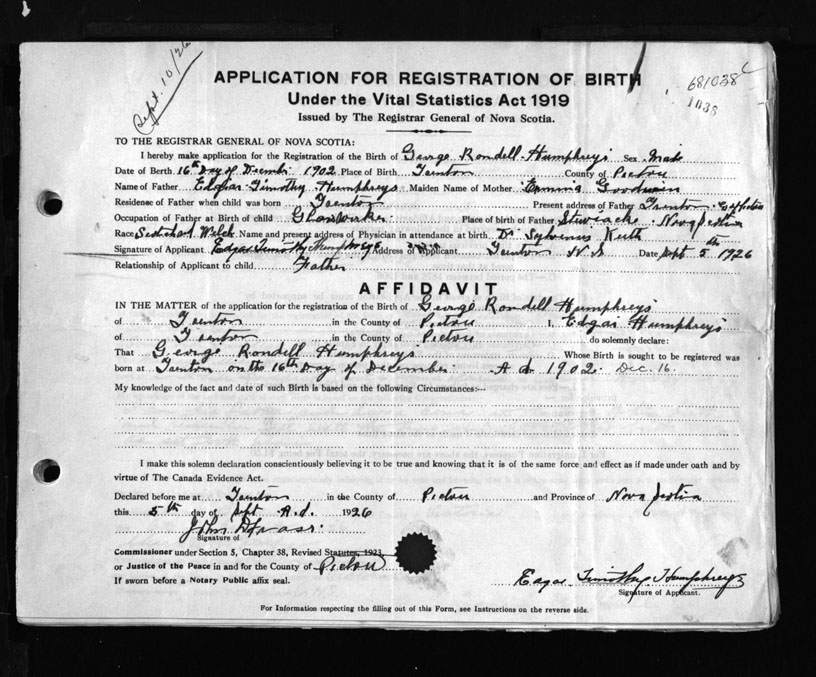 Sept. 10/26
681038
1038
APPLICATION FOR REGISTRATION OF BIRTH
Under the Vital Statistics Act 1919
Issued by The Registrar General of Nova Scotia.
TO THE REGISTRAR GENERAL OF NOVA SCOTIA:
I hereby make application for the Registration of the Birth of George Rondell Humphreys Sex Male
Date of Birth 16th Day of Decembr 1902 Place of Birth Trenton County of Pictou
Name of Father Edgar Timothy Humphreys Maiden Name of Mother Emma Goodwin
Residense of Father when child was born Trenton Present address of Father Trenton Co of Pictou
Occupation of Father at Birth of child Glass Worker Place of Birth of Father Stewiacke Nova Scotia
Race Welch Name and present address of Physician in attendance at birth Dr Sylvenus Keith
Signature of Applicant Edgar Timothy Humphreys Address of Applicant Trenton N. S Date Sept 5th 1926
Relationship of Applicant to child Father
AFFIDAVIT
IN THE MATTER of the application for the registration of the Birth of George Rondell Humphreys
of Trenton in the County of Pictou I, Edgar Humphreys
of Trenton in the County of Pictou do solemnly declare:
That George Rondell Humphreys Whose Birth is sought to be registered was
born at Trenton on the 16th Day of December A d. 1902. Dec. 16.
My knowledge of the fact and date of such Birth is based on the following Circumstances:--
I make this solemn declaration conscientiously believing it to be true and knowing that it is of the same force and effect as if made under oath and by
virtue of The Canada Evidence Act.
Declared before me at Trenton in the County of Pictou and Province of Nova Scotia
this 5th day of Sept A.d. 1926
John D Fraser
Signature of
Commissioner under Section 5, Chapter 38, Revised Statutes, 1923,
or Justice of the Peace in and for the County of Pictou
If sworn before a Notary Public affix seal.
Edgar Timothy Humphreys
Signature of Applicant.
For Information respecting the filling out of this Form, see Instructions on the reverse side.